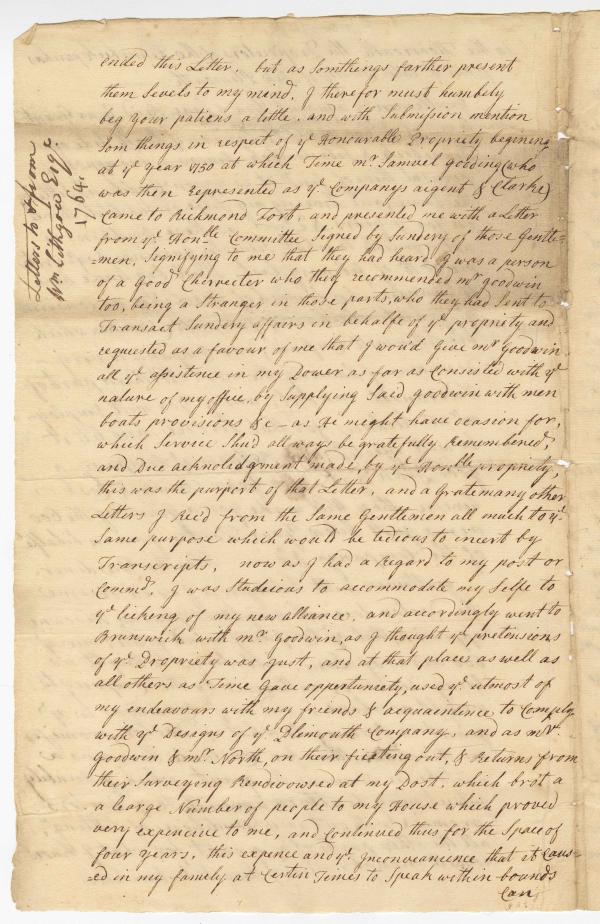 ended this Letter, but as Somthings farther present
them Sevels to my mind, J therefor must humbily
beg your patiens a little, and with Submission mention
Som things in respect of yͤ Honourable Propriety begining
at yͤ year 1750 at which Time mͬ Samuel gooding (who
was then represented as yͤ Companys aigent & Clarke)
Came to Richmond Fort, and presented me with a Letter
from yͤ Honͣble Committee Signed by Sundery of those Gentle=
=men, Signifying to me that they had heard J was a person
of a Good Cherecter who they recommended mͬ goodwin
too, being a Stranger in those parts, who they had Sent to
Transact Sundery affairs in behalfe of yͤ propriety and
requested as a favour of me that J wou'd Give mͬ Goodwin
all yͤ assistence in my Power as far as Consisted with yͤ
nature of my office, by Supplying Said goodwin with men
boats provisions &c – as He might have ocasion for,
which Service Shu'd all ways be gratefully Remembered,
and Due acknoledgment made, by yͤ Honble propriety,
this was the purport of that Letter, and a Grate many other
Letters J Rec'd from the Same Gentlemen all much to yͤ
Same purpose which would be tedious to incert by
Transcripts, now as J had a Regard to my post or
Commd, J was Studeious to accommodate my Selfe to
yͤ likeing of my new alliance, and accordingly went to
Brunswick with mͬ Goodwin, as J thought yͤ pretensions
of yͤ Propriety was just, and at that place as well as
all others as Time Gave opportuniety, used yͤ utmost of
my endeavours with my friends & acquaintence, to Comply
with yͤ Designs of yͤ Plimouth Company, and as mͬ
Goodwin & mͬ North, on their fieting out, & Returns from
their Surveying Rendivowsed at my Post, which brot a
a Learge Number of people to my House which proved
very expencive to me, and Continued thus for the Space of
four years, this expence and yͤ Jnconveanience that it Caus=
=ed in my family at Certin Times to Speak within bounds
Can
Letters to & from
Wm Lithgow Esqr
1764.